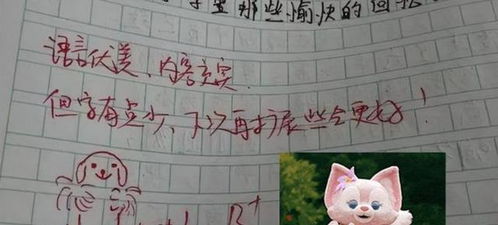 那些愉快的回忆
语言优美、内容充实
但字有点少、下次再扩展些会更好！
B+